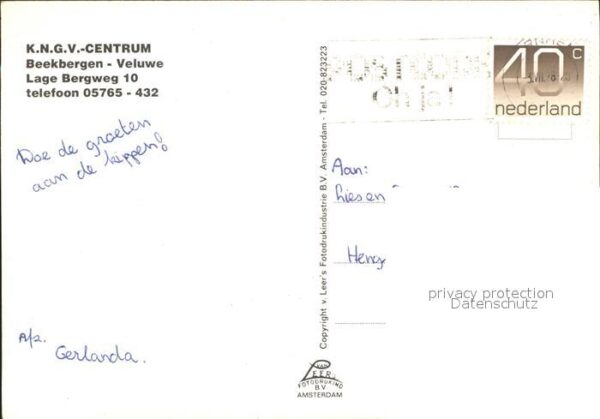 K.N.G.V.-CENTRUM
Beekbergen - Veluwe
Lage Bergweg 10
telefoon 05765 - 432
Doe de groeten
aan de kippen!
A/z.
Gerlanda.
Copyright v. Leer's Fotodrukindustrie B.V. Amsterdam - Tel. 020-823223
40c
nederland
Aan:
Liesen
Heng
privacy protection
Datenschutz
VAN
LEER
FOTODRUKIND
B.V
AMSTERDAM